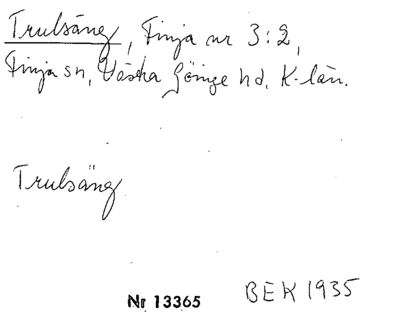 Trulsäng, Finja nr 3:2,
Finja sn, Västra Göinge hd, K-län.
Trulsäng
Nr 13365
BEK 1935